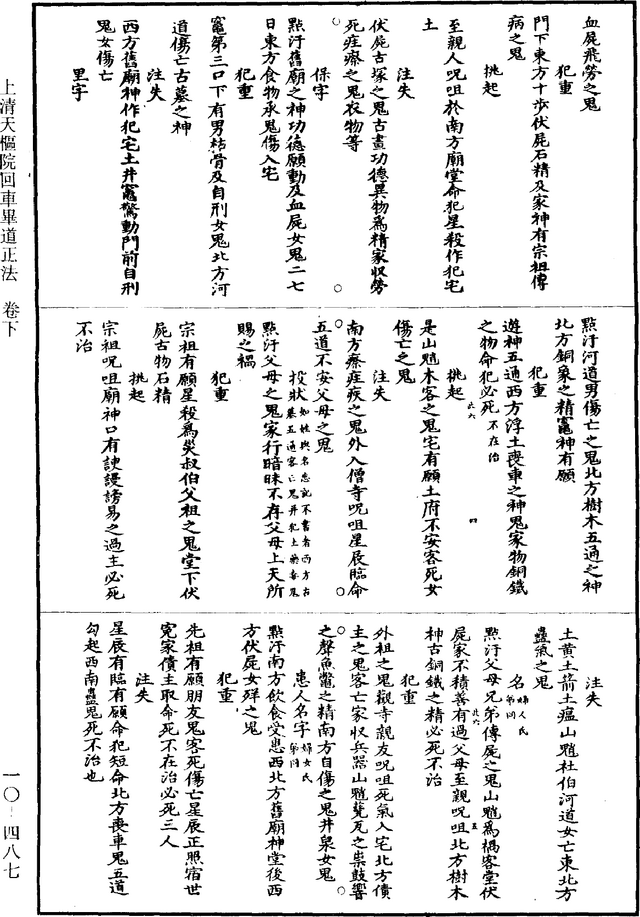 血屍飛勞之鬼
犯重
門下東方十步伏屍石精及家神有宗祖傳
病之鬼
挑起
至親人呪咀於南方廟堂命犯星殺作犯宅
土
注失
伏屍古塚之鬼古畫功德異物為精家收勞
死疰瘵之鬼衣物等
保字
點汙舊廟之神功德願動及血屍女鬼二七
日東方食物承鬼傷入宅
犯重
竈第三口下有男枯骨及自刑女鬼北方河
道傷亡古墓之神
注失
西方舊廟神作犯宅土井竈驚動門前自刑
鬼女傷亡
里字
點汙河道男傷亡之鬼北方樹木五通之神
北方銅象之精竈神有願
犯重
遊神五通西方浮土喪車之神鬼家物銅鐵
之物命犯必死不在治
挑起
是山魈木客之鬼宅有願土府不安客死女
傷亡之鬼
注失
南方瘵疰疾之鬼外入僧寺呪咀星辰臨命
五道不安父母之鬼
投狀如姓與名忘記不書者西方古
墓五通客亡鬼并犯土藥毒鬼
點汙父母之鬼家行暗昧不存父母上天所
賜之禍
犯重
宗祖有願星殺為災叔伯父祖之鬼堂下伏
屍古物石精
挑起
宗祖呪咀廟神口有謏謾謗易之過主必死
不治
注失
土黃土箭土瘟山魈社伯河道女亡東北方
蠱氣之鬼
名婦人氏第同
點汙父母兄弟傳屍之鬼山魈為禍客堂伏
屍家不積善有過父母至親呪咀北方樹木
神古銅鐵之精必死不治
犯重
外祖之鬼觀寺親友呪咀死氣入宅北方債
主之鬼客亡家收兵器山魈甕瓦之祟鼓響
之聲魚鱉之精南方自傷之鬼井泉女鬼
患人名字婦女氏第同
點汙南方飲食受患西北方舊廟神堂後西
方伏屍女殍之鬼
犯重
先祖有願朋友鬼客死傷亡星辰正照宿世
冤家債主取命死不在治必死三人
注失
星辰有臨有願命犯短命北方喪車鬼五道
勾起西南蠱鬼死不治也
上清天樞院回車畢道正法 卷下
一〇-四八七